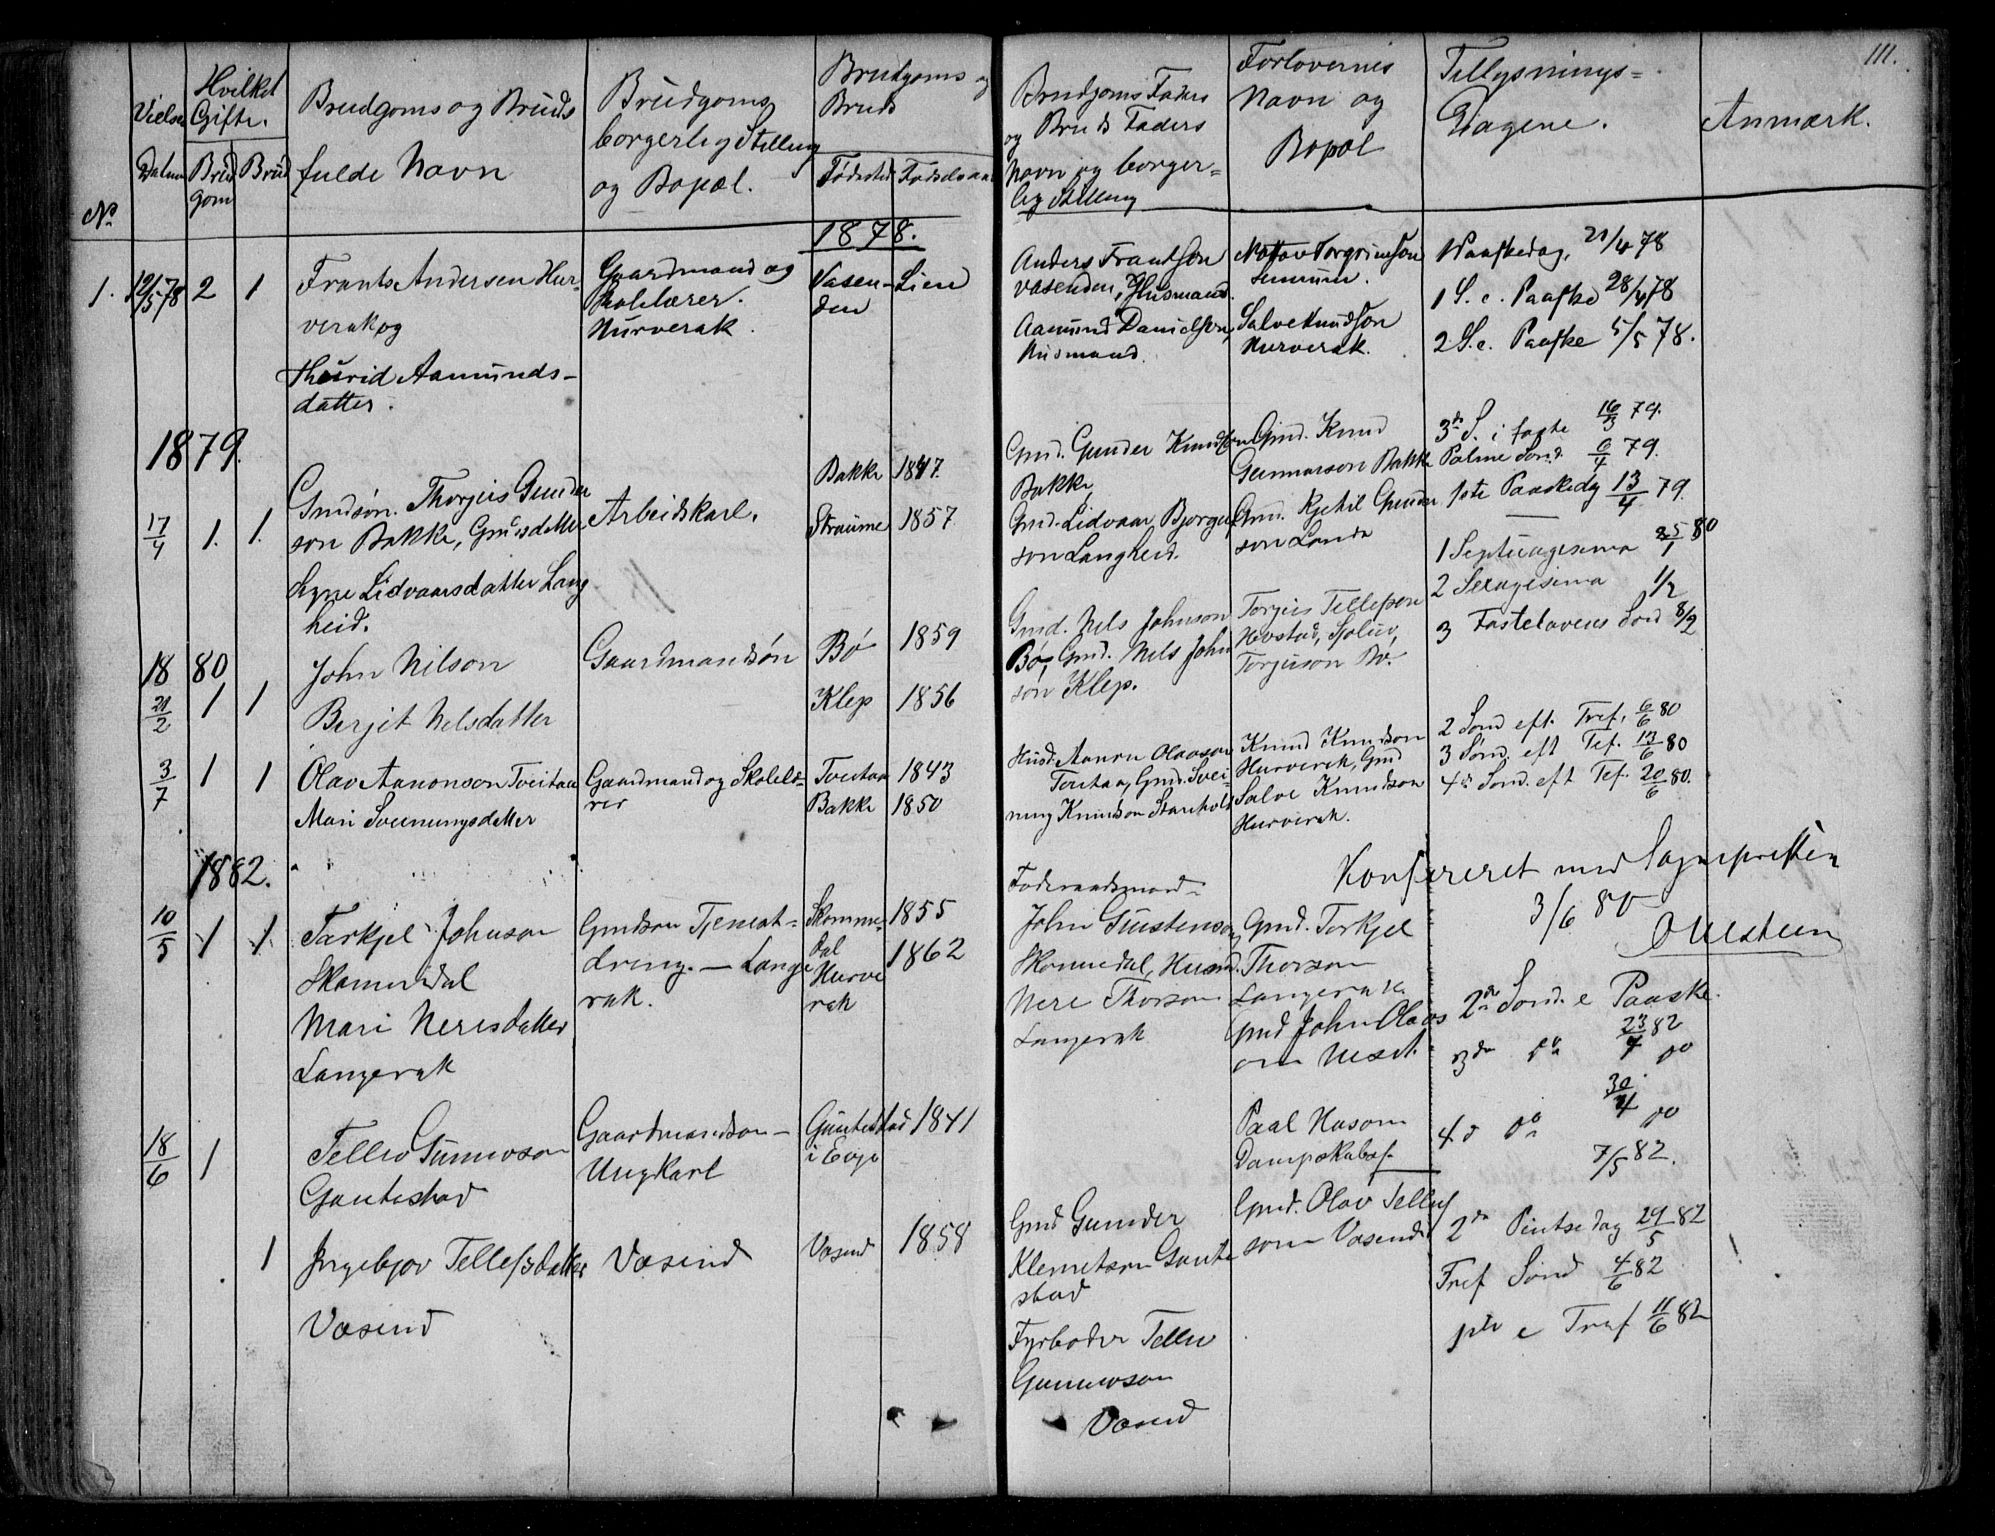 111.
No
Vielses
Datum
Hvilket
Gifte.
Brud
gom
Brud
Brudgoms og Bruds
fulde Navn
Brudgoms
borgerlig Stilling
og Bopæl.
Brudgoms og
Bruds
Fødested
Fødselsaar
Brudgoms Faders
og Bruds Faders
Navn og borger-
lig Stilling
Forlovernes
Navn og
Bopæl
Tillysnings-
Dagene.
Anmærk.
1878.
1. 12/5 78 2 1
Frants Andersen Hur-
verak og
Thurid Aamunds-
datter.
Gaardmand og
Skolelærer.
Hurverak.
Vasen-
den
Lien
Anders Frantsson
Vasenden, Husmand.
Aamund Danielsson,
Husmand.
Torgrimson
Salve Knudson
Hurverak.
1 Paaskedag, 21/4 78
1 S. e. Paaske 28/4 78
2 S. e. Paaske 5/5 78.
1879.
17/4 1. 1.
Gmdsøn. Thorjeis Gunder
son Bakke, Gmdsdatter
Signe Lidvaarsdatter Lang
heid.
Arbeidskarl.
Bakke 1847.
Straume 1857
Gmd. Gunder Knudson
Bakke
Gmd. Lidvaar Bjorguf
son Langheid.
Gmd. Knud
Gunnarson Bakke
Gmd. Kjetil Gunder
son Landa
3de S. i faste 16/3 79.
Palme Sønd. 6/4 79.
1ste Paaskedg 13/4 79.
1880
21/2 1 1
John Nilson
Berjit Nelsdatter
Gaardmandsøn
Bø 1859
Klep 1856
Gmd. Nels Johnson
Bø, Gmd. Nels John
son Klep.
Torjeis Tellefson
Hovstad,
Torjuson Bø.
1 Septuagesima 25/1 80
2 Sexagesima 1/2
3 Fastelavens Sønd 8/2
3/7 1 1
Olav Aanonson Tveitaa
Mari Sveinungsdatter
Gaardmand og Skolelæ-
rer
Tveitaa 1843
Bakke 1850
Husd. Aanon Olavson
Tveitaa, Gmd. Svei-
nung Knudson
Knud Knudson
Hurverak, Gmd
Salve Knudson
Hurverak.
2 Sønd eft. Tref. 6/6 80
3 Sønd. eft Tef. 13/6 80
4de Sønd. eft Tef. 20/6 80.
Konfereret med Sognepresten
3/6 80
1882.
10/5 1 1
Tarkjel Johnson
Skomedal
Mari Neresdatter
Langerak
Gmdson Tjenest-
dreng. — Lange
rak.
Skomme-
dal
1855
Hurve
rak
1862
Foderaadsmand
John Gunstenson
Skomedal, Husmd.
Nere Thorson
Langerak
Gmd. Torkjel
Thorson
Langerak.
Gmd John Olavs
son Neset.
2den Sønd. e Paaske.
23/4 82
3de do do
30/4
4de do do
7/5 82.
18/6 1
Tellev Gunderson
Gautestad
Gaardmandson —
Ungkarl
Gautestad
i Evje
1841
Paal Husom
Dampskabsf.
1
Ingebjor Tellefsdatter
Vasend
Vasend
Vasend 1858
Gmd Gunder
Klemetson Gaute
stad
Fyrbøder Tellev
Gunnerson
Vasend
Gmd. Olav Tellef
son Vasend
2den Pintsedag 29/5 82
Tref Sønd 4/6 82
1ste e Tref 11/6 82